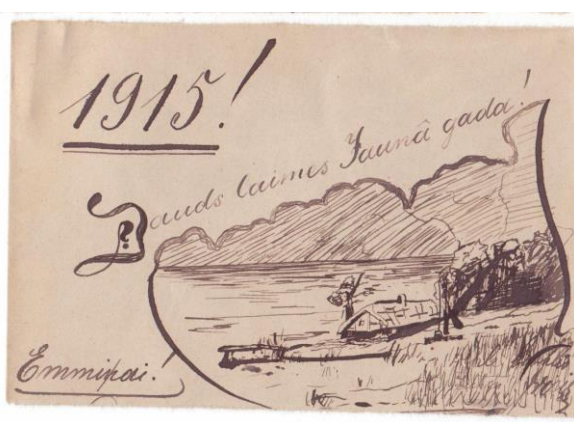 1915!
Dauds laimes Jaunâ gada!
?
Emmiņai!